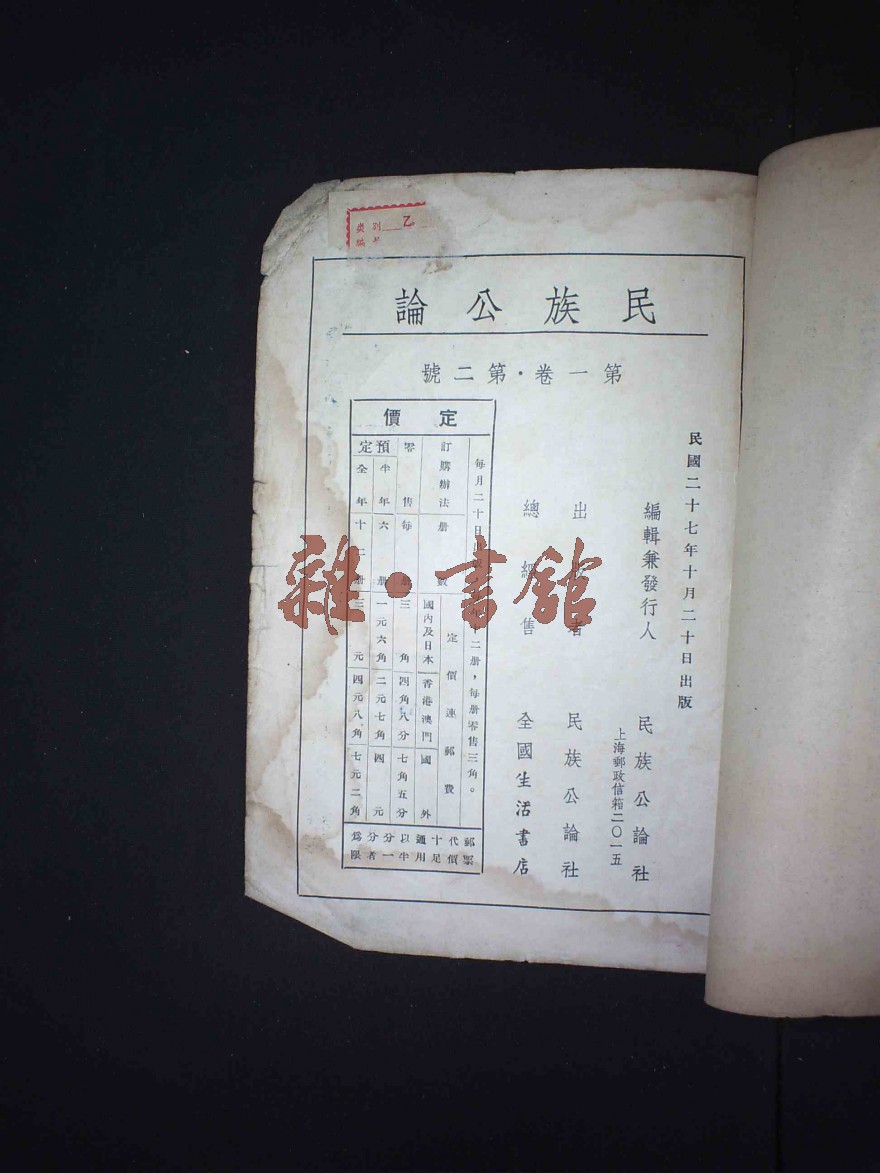 類別 乙
民族公論
第一卷·第二號
民國二十七年十月二十日出版
編輯兼發行人 民族公論社
上海郵政信箱二〇一五
出 者 民族公論社
總經售 全國生活書店
定價
每月二十日 十二册，每册零售三角。
訂購辦法 册數 定價連郵費
國內及日本 香港澳門 國外
零售 每册 三角 四角八分 七角五分
預定 半年 六册 一元六角 二元七角 四元
全年 十二册 三元 四元八角 七元二角
郵票代價十足通用以半分一分者爲限
雜·書館